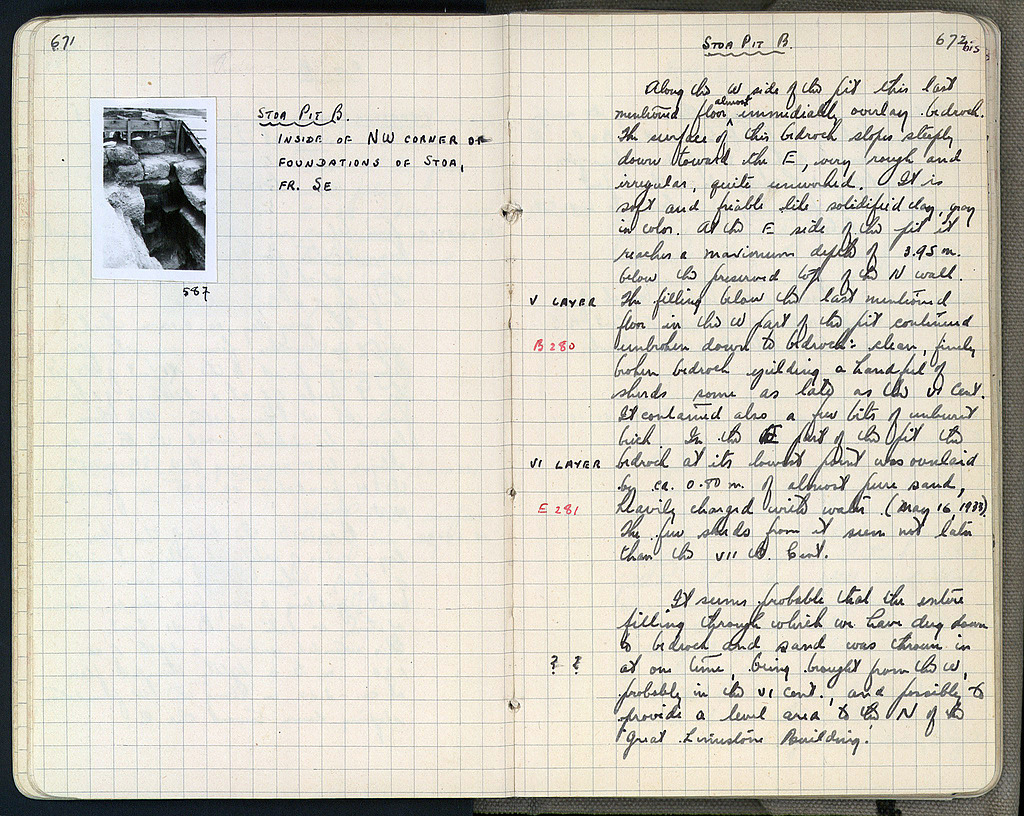 671
STOA PIT B.
INSIDE OF NW CORNER OF
FOUNDATIONS OF STOA,
FR. SE
587
STOA PIT B.
672 bis
Along the W side of the pit this last
mentioned floor almost immediately overlay bedrock.
The surface of this bedrock slopes steeply
down toward the E, very rough and
irregular, quite unworked. It is
soft and friable like solidified clay, gray
in color. At the E side of the pit it
reaches a maximum depth of 3.95 m.
below the preserved top of the N wall.
V LAYER The filling below the last mentioned
floor in the W part of the pit continued
B 280 unbroken down to bedrock: clean, finely
broken bedrock yielding a handful of
sherds some as late as the VI Cent.
It contained also a few bits of unburnt
brick In the E part of the pit the
VI LAYER bedrock at its lowest point was overlaid
by ca. 0.80 m. of almost pure sand,
E 281 heavily charged with water. (May 16, 1933).
The few sherds from it seem not later
than the VII th. Cent.
It seems probable that the entire
filling through which we have dug down
to bedrock and sand was thrown in
? ? at one time, being brought from the W,
probably in the VI cent., and possibly to
provide a level area to the N of the
"Great Limestone Building."